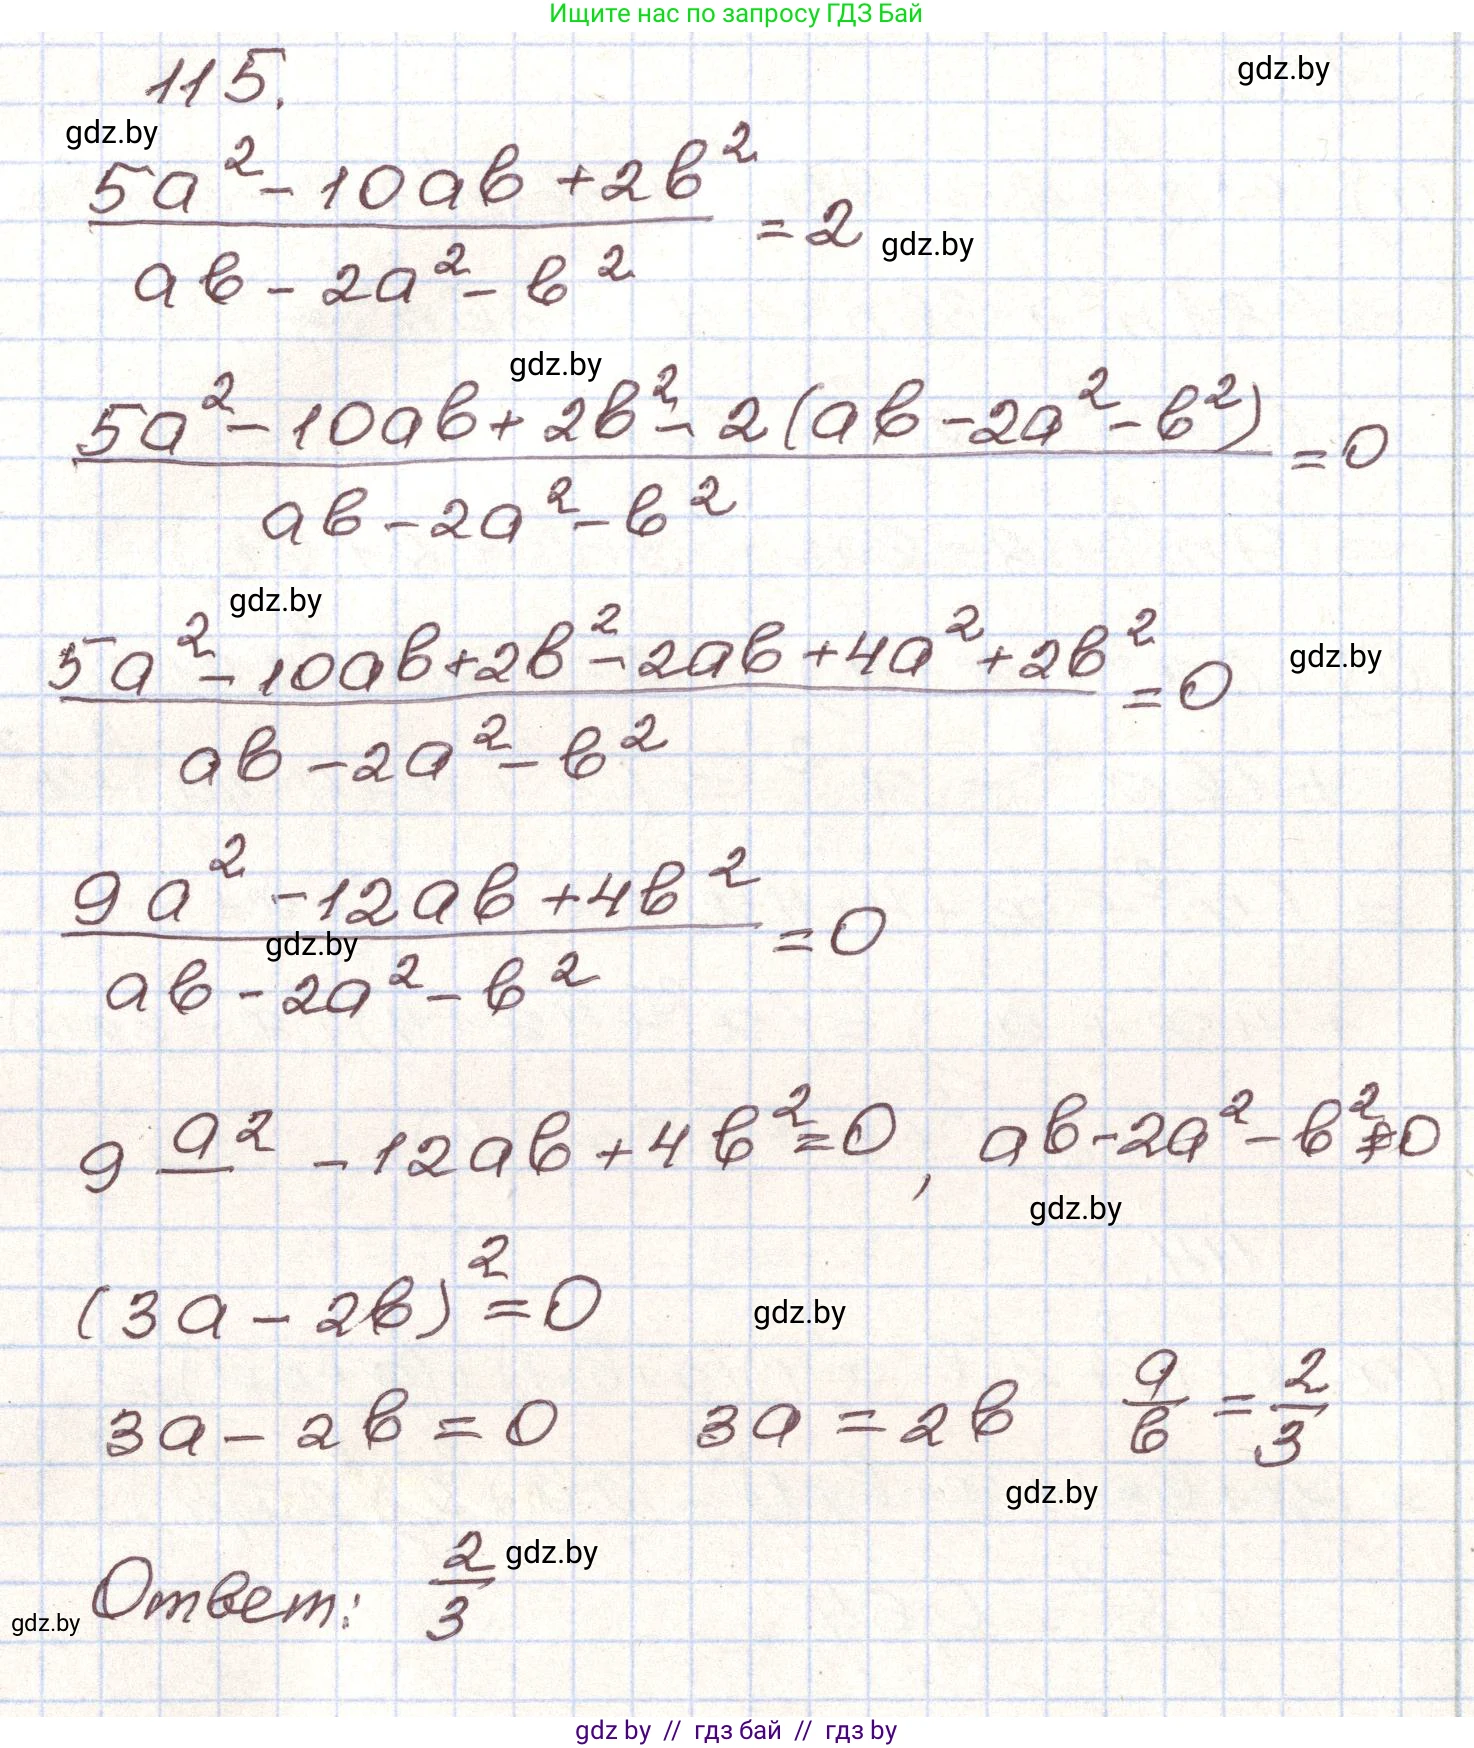 Ищите нас по запросу ГДЗ Бай
115.
gdz.by
gdz.by
(5a² - 10ab + 2b²) / (ab - 2a² - b²) = 2
gdz.by
gdz.by
(5a² - 10ab + 2b² - 2(ab - 2a² - b²)) / (ab - 2a² - b²) = 0
gdz.by
(5a² - 10ab + 2b² - 2ab + 4a² + 2b²) / (ab - 2a² - b²) = 0
gdz.by
(9a² - 12ab + 4b²) / (ab - 2a² - b²) = 0
gdz.by
9a² - 12ab + 4b² = 0, ab - 2a² - b² ≠ 0
gdz.by
(3a - 2b)² = 0
gdz.by
3a - 2b = 0 3a = 2b a/b = 2/3
gdz.by
Ответ: 2/3
gdz.by
gdz.by
gdz by // гдз бай // гдз by